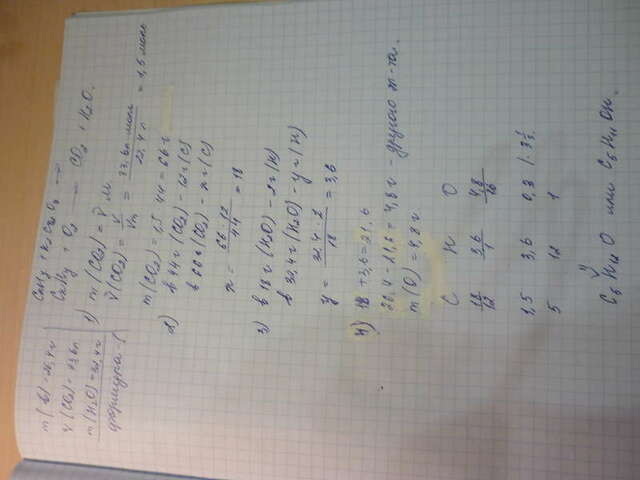 m(в-ва)=26,4г
V(CO₂)=33,6л
m(H₂O)=32,4г
формула-?
CxHy + O₂ → CO₂ + H₂O.
1) m(CO₂) = ν̃ · M
ν̃(CO₂) = V/Vm = 33,6л·моль/22,4л = 1,5 моль
m(CO₂) = 1,5 · 44 = 66г
2) в 44г (CO₂) - 12г (C)
в 66г (CO₂) - xг (C)
x = 66·12/44 = 18
3) в 18г (H₂O) - 2г (H)
в 32,4г (H₂O) - yг (H)
y = 32,4·2/18 = 3,6
4) 18 + 3,6 = 21,6
26,4 - 21,6 = 4,8г - другого эл-та.
m(O) = 4,8г
C H O
18/12 3,6/1 4,8/16
1,5 3,6 0,3
5 12 1
C₅H₁₂O или C₅H₁₁OH.